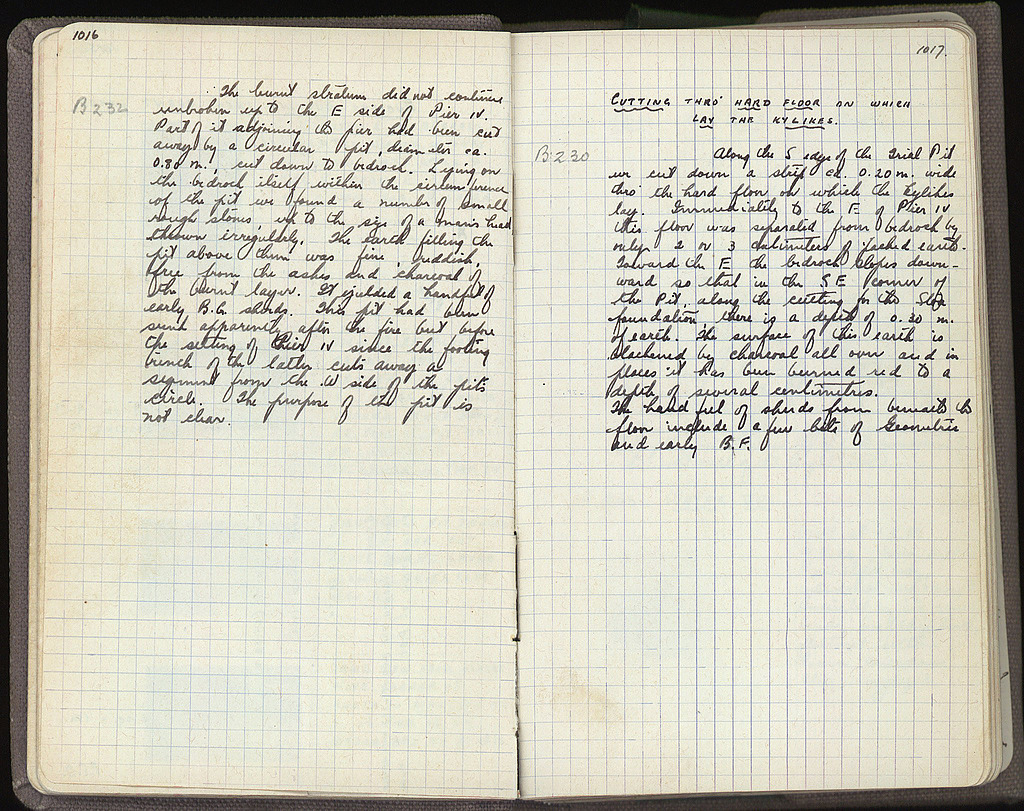 1016
B 232
The burnt stratum did not continue
unbroken up to the E side of Pier IV.
Part of it adjoining the pier had been cut
away by a circular pit, diameter ca.
0.80 m., cut down to bedrock. Lying on
the bedrock itself within the circumference
of the pit we found a number of small
rough stones, up to the size of a man's head
thrown irregularly. The earth filling the
pit above them was fine, reddish,
free from the ashes and charcoal of
the burnt layer. It yielded a handful of
early B.G. sherds. This pit had been
sunk apparently after the fire but before
the setting of Pier IV since the footing
trench of the latter cuts away a
segment from the W side of the pit's
circle. The purpose of the pit is
not clear.
1017.
CUTTING THRO' HARD FLOOR ON WHICH
LAY THE KYLIKES.
B 230
Along the S edge of the Trial Pit
we cut down a strip ca. 0.20 m. wide
thro' the hard floor on which the Kylikes
lay. Immediately to the E of Pier IV
this floor was separated from bedrock by
only 2 or 3 centimeters of packed earth.
Toward the E the bedrock slopes down-
ward so that in the SE corner of
the Pit, along the cutting for the Stoa
foundation there is a depth of 0.30 m.
of earth. The surface of this earth is
blackened by charcoal all over and in
places it has been burned red to a
depth of several centimetres.
The handful of sherds from beneath the
floor include a few bits of Geometric
and early B.F.